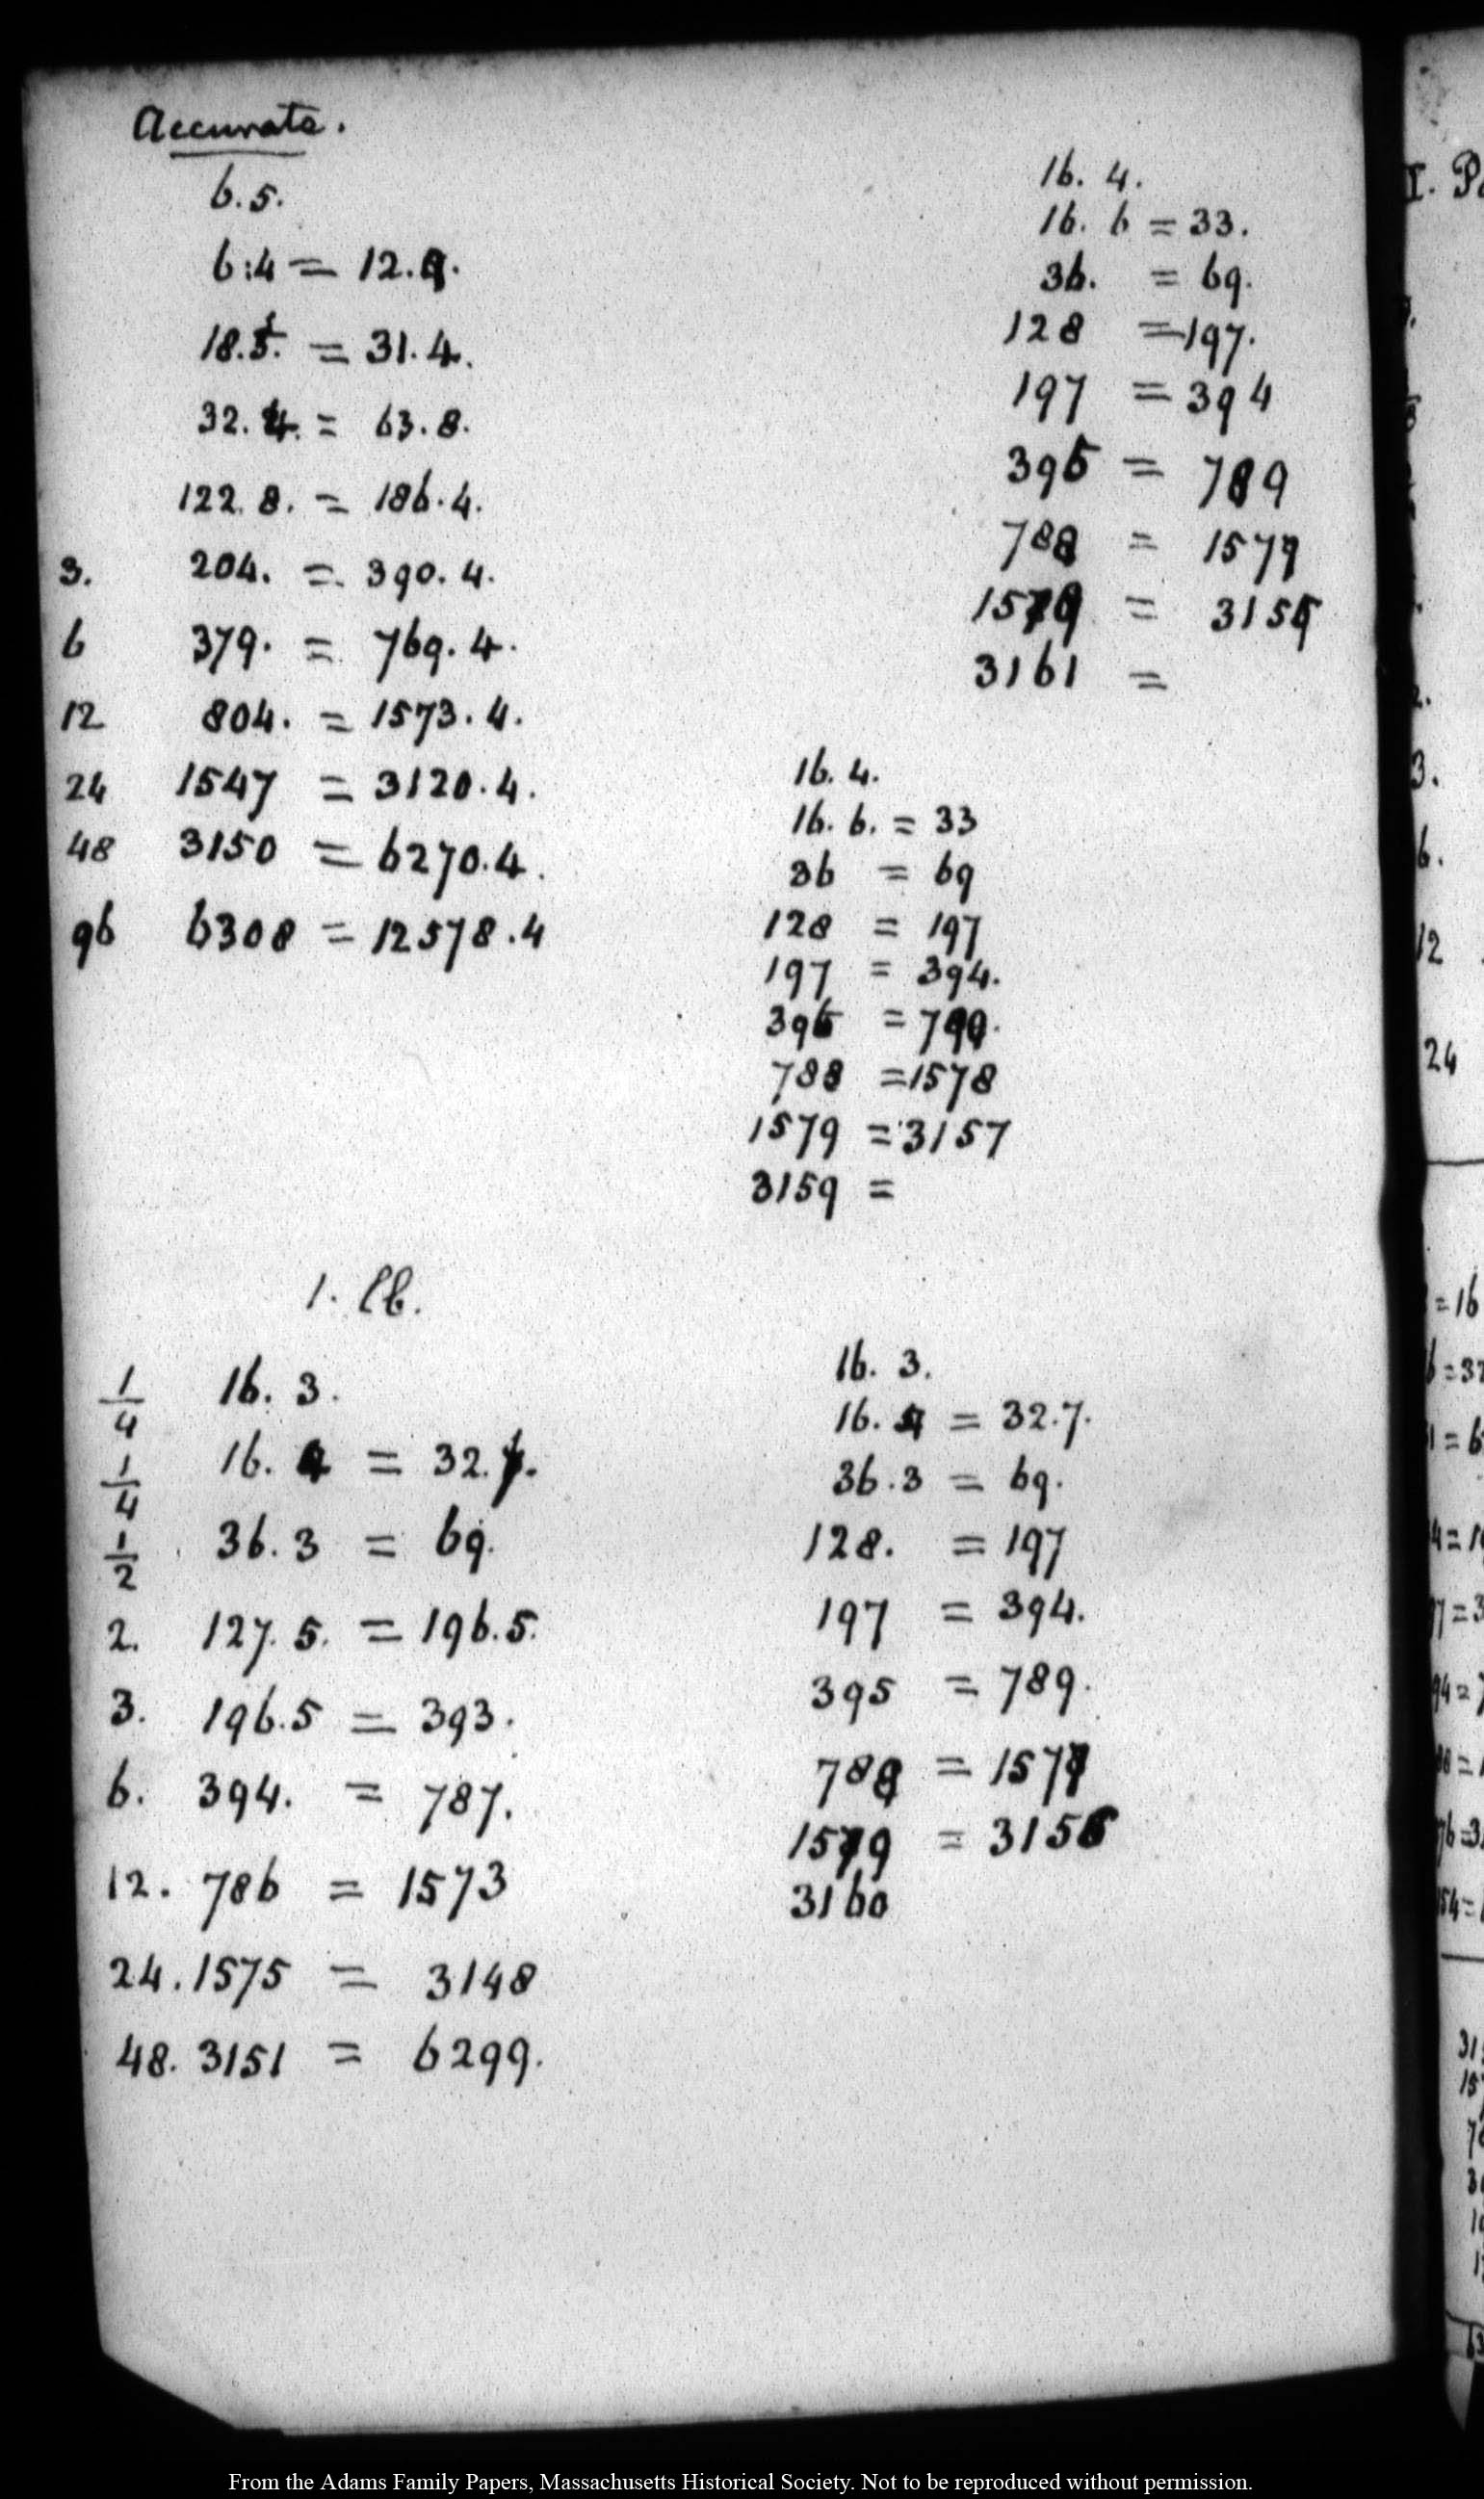 Accurate.
6.5.
6:4 = 12.9.
18.5. = 31.4.
32.4. = 63.8.
122.8. = 186.4.
3. 204. = 390.4.
6 379. = 769.4.
12 804. = 1573.4.
24 1547 = 3120.4.
48 3150 = 6270.4.
96 6308 = 12578.4
16. 4.
16. 6 = 33.
36. = 69.
128 = 197.
197 = 394
395 = 789
788 = 1577
1579 = 3155
3161 =
16. 4.
16. 6. = 33
36 = 69
128 = 197
197 = 394.
395 = 790.
788 = 1578
1579 = 3157
3159 =
1. lb.
1/4 16. 3.
1/4 16. 4 = 32.7.
1/2 36.3 = 69.
2. 127.5. = 196.5.
3. 196.5 = 393.
6. 394. = 787.
12. 786 = 1573
24. 1575 = 3148
48. 3151 = 6299.
16. 3.
16. 4 = 32.7.
36.3 = 69.
128. = 197
197 = 394.
395 = 789.
788 = 1577
1579 = 3156
3160
I.
3.
6.
12
24
=16
From the Adams Family Papers, Massachusetts Historical Society. Not to be reproduced without permission.